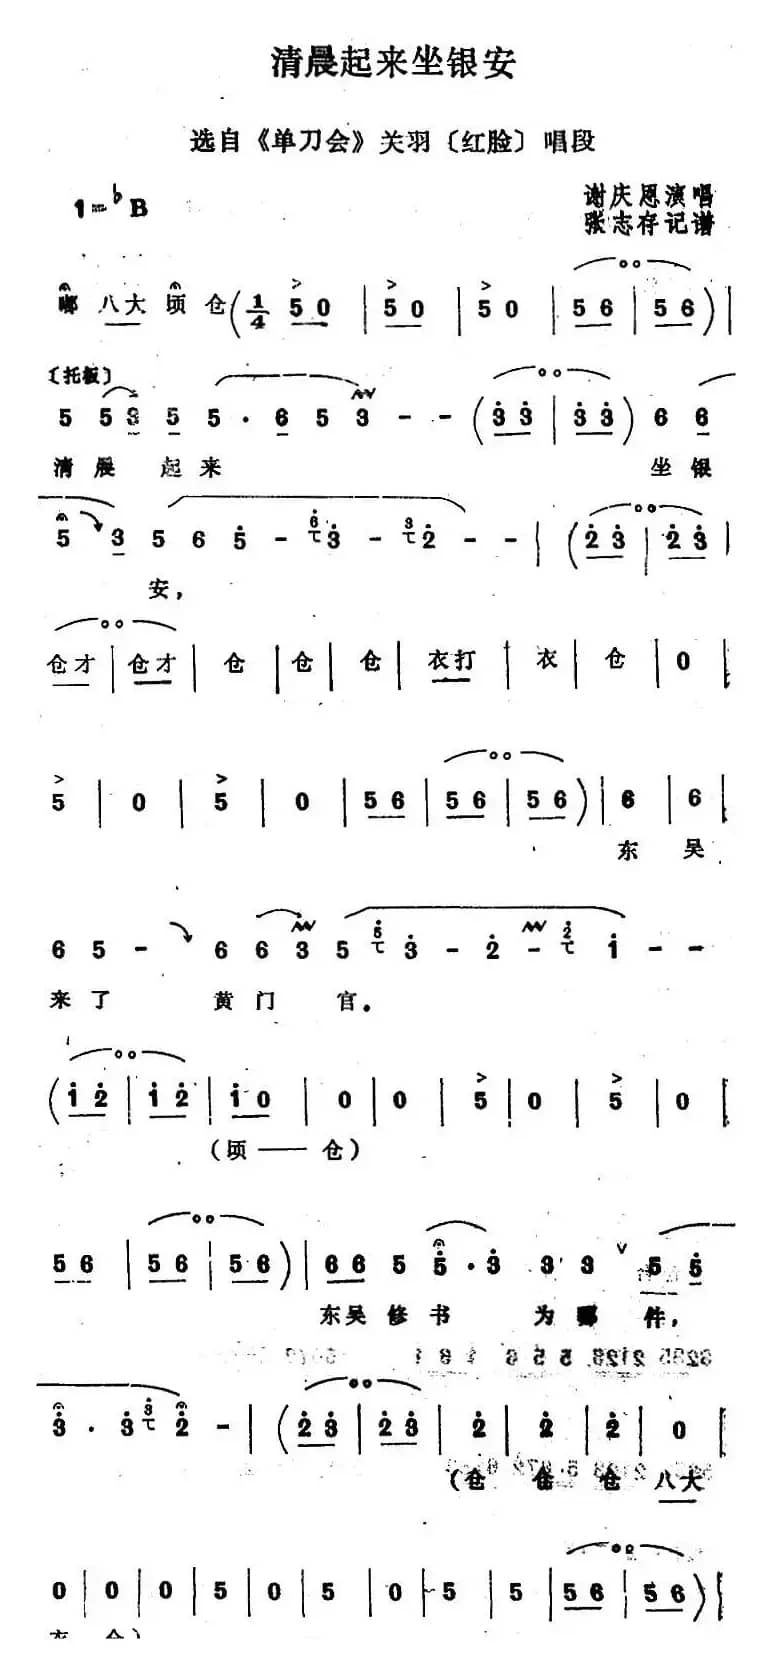 清晨起来坐银安
选自《单刀会》关羽〔红脸〕唱段
1=♭B
谢庆恩演唱
张志存记谱
嘟 八大 顷 仓 ( 1/4 5 0 | 5 0 | 5 0 | 5 6 | 5 6 ) |
〔托板〕
5 5 3 5 5 · 6 5 3 - - ( 3 3 | 3 3 ) 6 6
清 晨 起 来 坐 银
5 3 5 6 5 - 6 3 - 3 2 - - | ( 2 3 | 2 3 |
安,
仓才 | 仓才 | 仓 | 仓 | 仓 | 衣打 | 衣 | 仓 | 0 |
5 | 0 | 5 | 0 | 5 6 | 5 6 | 5 6 ) | 6 | 6 |
东 吴
6 5 - 6 6 3 5 3 - 2 - 2 1 - -
来 了 黄 门 官。
( 1 2 | 1 2 | 1 0 | 0 | 0 | 5 | 0 | 5 | 0 |
(顷 —— 仓)
5 6 | 5 6 | 5 6 ) | 6 6 5 5 · 3 3 3 ∨ 5 5
东吴 修 书 为 哪 件,
3 · 3 3 2 - | ( 2 3 | 2 3 | 2 | 2 | 2 | 0 |
(仓 仓 仓 八大
0 | 0 | 0 | 5 | 0 | 5 | 0 | 5 | 5 | 5 6 | 5 6 | 5 6 ) |
衣 仓)